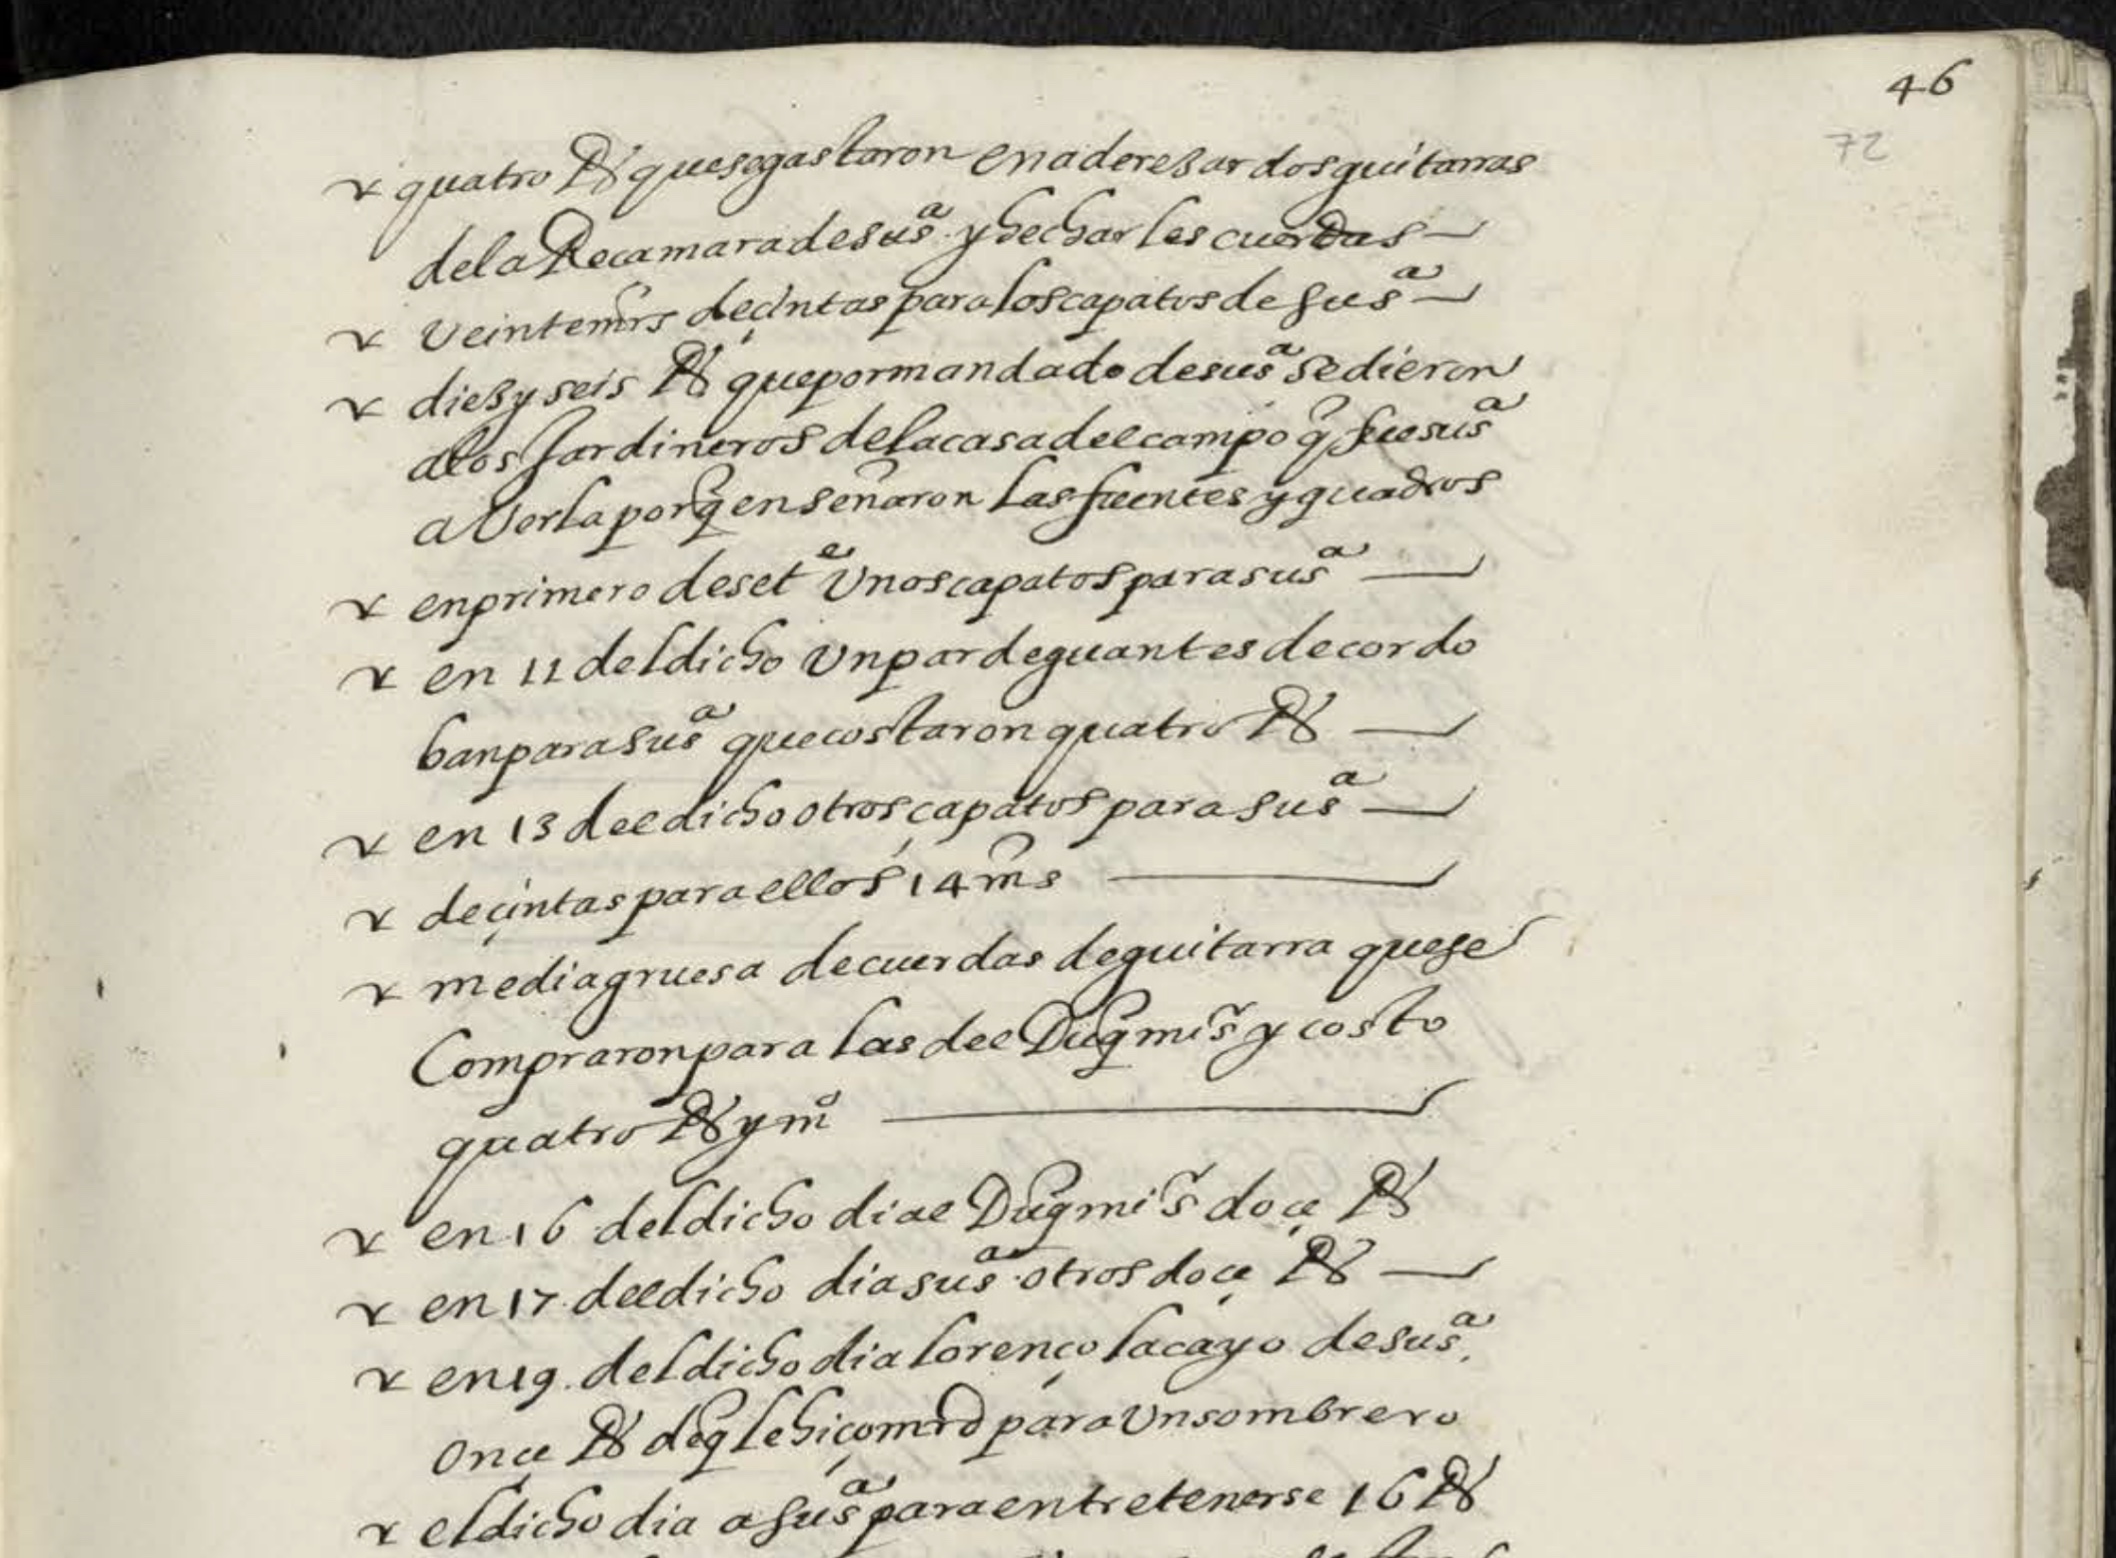 46
72
quatro Rs que se gastaron en aderesar dos guitarras
de la Recamara de su sª y hechar les cuerdas
Veinte mrs de çintas para los capatos de su sª
dies y seis Rs que por mandado de su sª se dieron
a los Jardineros de la casa del campo q̃ fue su sª
a Verla porq̃ enseñaron las fuentes y quadros
en primero de setᵉ Unos capatos para su sª
en 11 del dicho Un par de guantes de cordo
ban para su sª que costaron quatro Rs
en 13 del dicho otros çapatos para su sª
de çintas para ellos 14 mrs
media gruesa de cuerdas de guitarra que se
Compraron para las del Duq̃ mi sʳ y costo
quatro Rs y mº
en 16 del dicho di al Duq̃ mi sʳ doçe Rs
en 17 del dicho di a su sª otros doçe Rs
en 19 del dicho di a lorenço lacayo de su sª
Onçe Rs de q̃ le hiço mrd para Un sombrero
el dicho dia a su sª para entretenerse 16 Rs